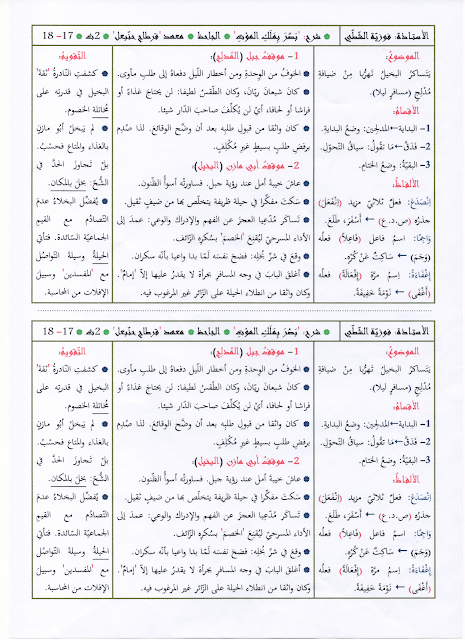 الأستاذة: فوزيّة الشّطّي * شرح: "بَصُرَ * الجاحظ * معهد "قرطاج حنّبعل" * 2ث * 17- 18
الموضوعُ:
يَتساكرُ البخيلُ تَهرُّبًا مِنْ ضيافةِ
مُدْلِجٍ (مسافرٍ ليلا).
الأقسامُ:
1- البداية ← المدلجين: وضعُ البدايةِ.
2- فَدَقّ ← مَا تَقُولُ: سياقُ التّحوّلِ.
3- البقيّةُ: وضعُ الختامِ.
الألفاظُ:
اِنْصَدَعَ: فعلٌ ثلاثيّ مزيد (اِنْفَعَلَ)
جذرُه (ص.د.ع) ← أَسْفَرَ، طَلَعَ.
وَاجِمًا: اسمُ فاعل (فَاعِلاً) فعلُه
(وَجَمَ) ← سَاكِتٌ عَنْ كُرْهٍ.
إِغْفَاءَةً: اِسمُ مرّة (إِفْعَالَةً) فعلُه
(أَغْفَى) ← نَوْمَةٌ خَفِيفَةٌ.
1- موقفُ جبل (المُدْلِج):
* الخوفُ من الوحدةِ ومن أخطار اللّيل دفعاهُ إلى طلبِ مأوى.
* كانَ شبعانَ ريّانَ، وكان الطّقسُ لطيفا: لن يحتاجَ غذاءً أو
فراشا أو لحافا، أيْ لن يُكلّفَ صاحبَ الدّار شيئا.
* كانَ واثقا من قبول طلبِه بعد أن وضّح الوقائعَ. لذا صُدِم
برفضِ طلبٍ بسيطٍ غيرِ مُكْلِفٍ.
2- موقفُ أبي مازن (البخيل):
* عاشَ خيبةَ أمل عند رؤية جبل. فساورتْه أسوأُ الظّنون.
* سَكتَ مفكّرا في حيلة ظريفة يتخلّص بها من ضيفٍ ثقيل.
* تَساكر مُدّعيا العجزَ عن الفهم والإدراك والوعي: عمدَ إلى
الأداء المسرحيّ ليُقنِعَ "الخصمَ" بسُكرِه الزّائف.
* وقعَ في شرّ بُخلِه: فضحَ نفسَه لَمّا بدا واعيا بأنّه سكران.
* أغلقَ البابَ في وجهِ المسافرِ بجرأة لا يقدرُ عليها إلاّ "إمامٌ".
وكان واثقا من انطلاءِ الحيلة على الزّائر غيرِ المرغوب فيه.
التّقويمُ:
* كشفتِ النّادرةُ "ثقةَ"
البخيل في قدرته على
مُخاتلة الخصوم.
* لم يَبخلْ أبو مازن
بالغذاء والمتاع فحسبُ.
بلْ تَجاوزَ الحدَّ في
الشّحّ: بخلَ بالمكان.
* يُفضِّل البخلاءُ عدمَ
التّصادُم مع القيم
الجماعيّة السّائدة. فتأتي
الحيلةُ وسيلةَ التّواصُل
مع "المفسدين" وسبيلَ
الإفلات من المحاسبة.
الأستاذة: فوزيّة الشّطّي * شرح: "بَصُرَ * الجاحظ * معهد "قرطاج حنّبعل" * 2ث * 17- 18
الموضوعُ:
يَتساكرُ البخيلُ تَهرُّبًا مِنْ ضيافةِ
مُدْلِجٍ (مسافرٍ ليلا).
الأقسامُ:
1- البداية ← المدلجين: وضعُ البدايةِ.
2- فَدَقّ ← مَا تَقُولُ: سياقُ التّحوّلِ.
3- البقيّةُ: وضعُ الختامِ.
الألفاظُ:
اِنْصَدَعَ: فعلٌ ثلاثيّ مزيد (اِنْفَعَلَ)
جذرُه (ص.د.ع) ← أَسْفَرَ، طَلَعَ.
وَاجِمًا: اسمُ فاعل (فَاعِلاً) فعلُه
(وَجَمَ) ← سَاكِتٌ عَنْ كُرْهٍ.
إِغْفَاءَةً: اِسمُ مرّة (إِفْعَالَةً) فعلُه
(أَغْفَى) ← نَوْمَةٌ خَفِيفَةٌ.
1- موقفُ جبل (المُدْلِج):
* الخوفُ من الوحدةِ ومن أخطار اللّيل دفعاهُ إلى طلبِ مأوى.
* كانَ شبعانَ ريّانَ، وكان الطّقسُ لطيفا: لن يحتاجَ غذاءً أو
فراشا أو لحافا، أيْ لن يُكلّفَ صاحبَ الدّار شيئا.
* كانَ واثقا من قبول طلبِه بعد أن وضّح الوقائعَ. لذا صُدِم
برفضِ طلبٍ بسيطٍ غيرِ مُكْلِفٍ.
2- موقفُ أبي مازن (البخيل):
* عاشَ خيبةَ أمل عند رؤية جبل. فساورتْه أسوأُ الظّنون.
* سَكتَ مفكّرا في حيلة ظريفة يتخلّص بها من ضيفٍ ثقيل.
* تَساكر مُدّعيا العجزَ عن الفهم والإدراك والوعي: عمدَ إلى
الأداء المسرحيّ ليُقنِعَ "الخصمَ" بسُكرِه الزّائف.
* وقعَ في شرّ بُخلِه: فضحَ نفسَه لَمّا بدا واعيا بأنّه سكران.
* أغلقَ البابَ في وجهِ المسافرِ بجرأة لا يقدرُ عليها إلاّ "إمامٌ".
وكان واثقا من انطلاءِ الحيلة على الزّائر غيرِ المرغوب فيه.
التّقويمُ:
* كشفتِ النّادرةُ "ثقةَ"
البخيل في قدرته على
مُخاتلة الخصوم.
* لم يَبخلْ أبو مازن
بالغذاء والمتاع فحسبُ.
بلْ تَجاوزَ الحدَّ في
الشّحّ: بخلَ بالمكان.
* يُفضِّل البخلاءُ عدمَ
التّصادُم مع القيم
الجماعيّة السّائدة. فتأتي
الحيلةُ وسيلةَ التّواصُل
مع "المفسدين" وسبيلَ
الإفلات من المحاسبة.